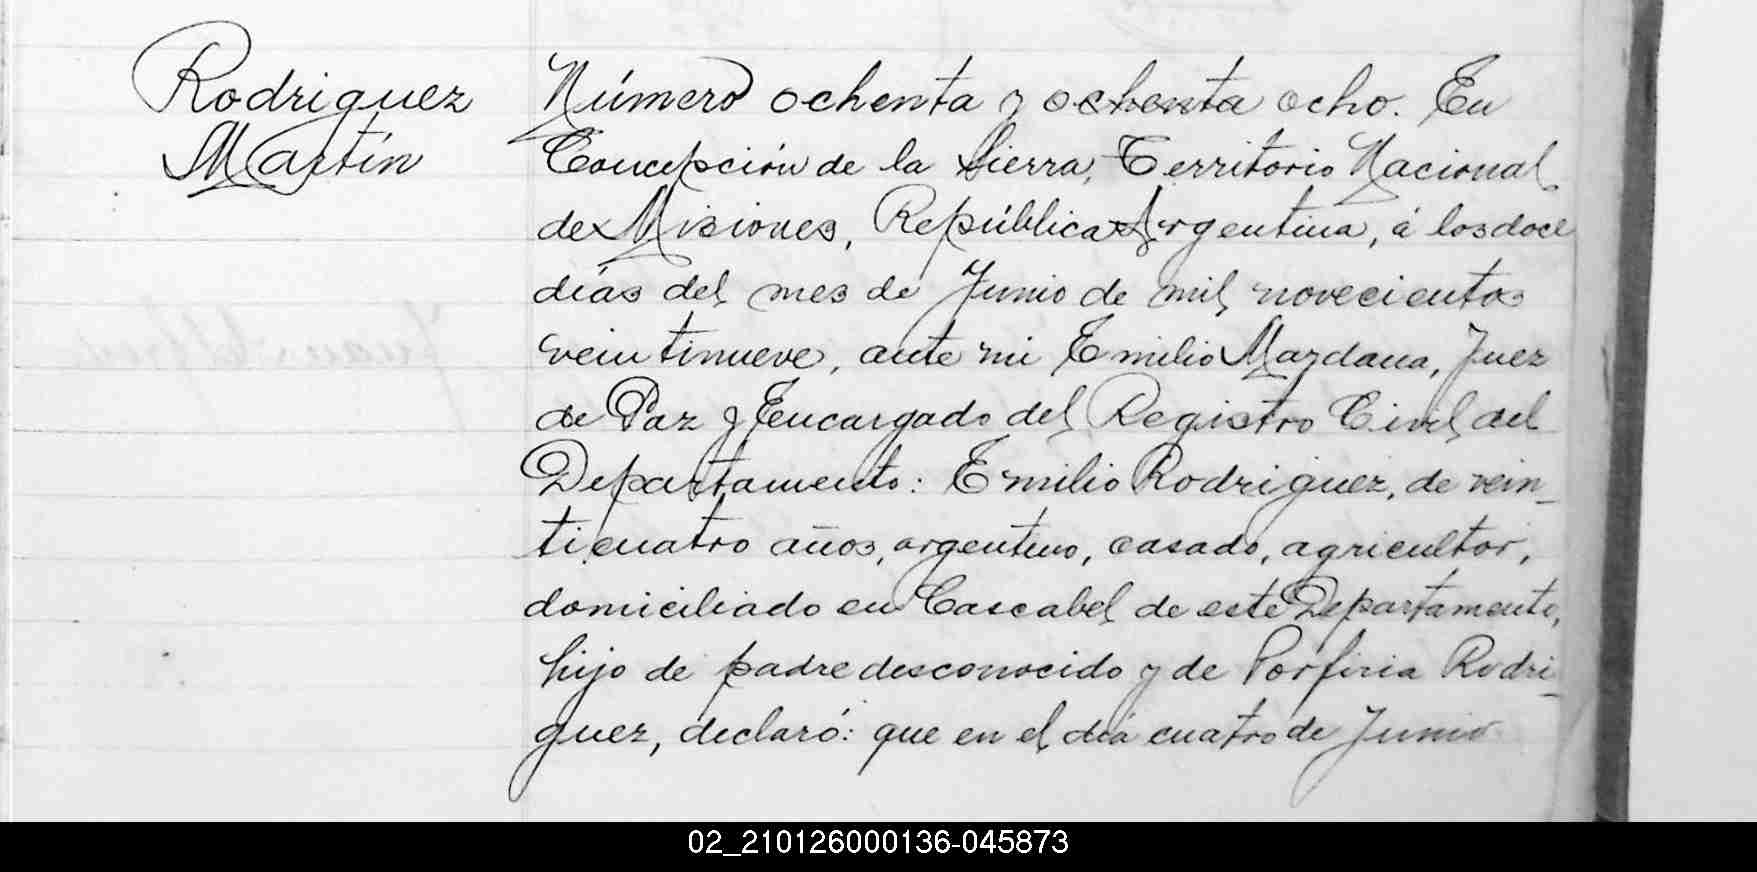 Rodriguez
Martín
Número ochenta y ochenta ocho. En
Concepción de la Sierra, Territorio Nacional
de Misiones, República Argentina, á los doce
días del mes de Junio de mil novecientos
veintinueve, ante mi Emilio Mardana, Juez
de Paz y Encargado del Registro Civil del
Departamento: Emilio Rodriguez, de vein-
ticuatro años, argentino, casado, agricultor,
domiciliado en Cascabel de este Departamento,
hijo de padre desconocido y de Porfiria Rodri-
guez, declaró: que en el día cuatro de Junio
02_210126000136-045873